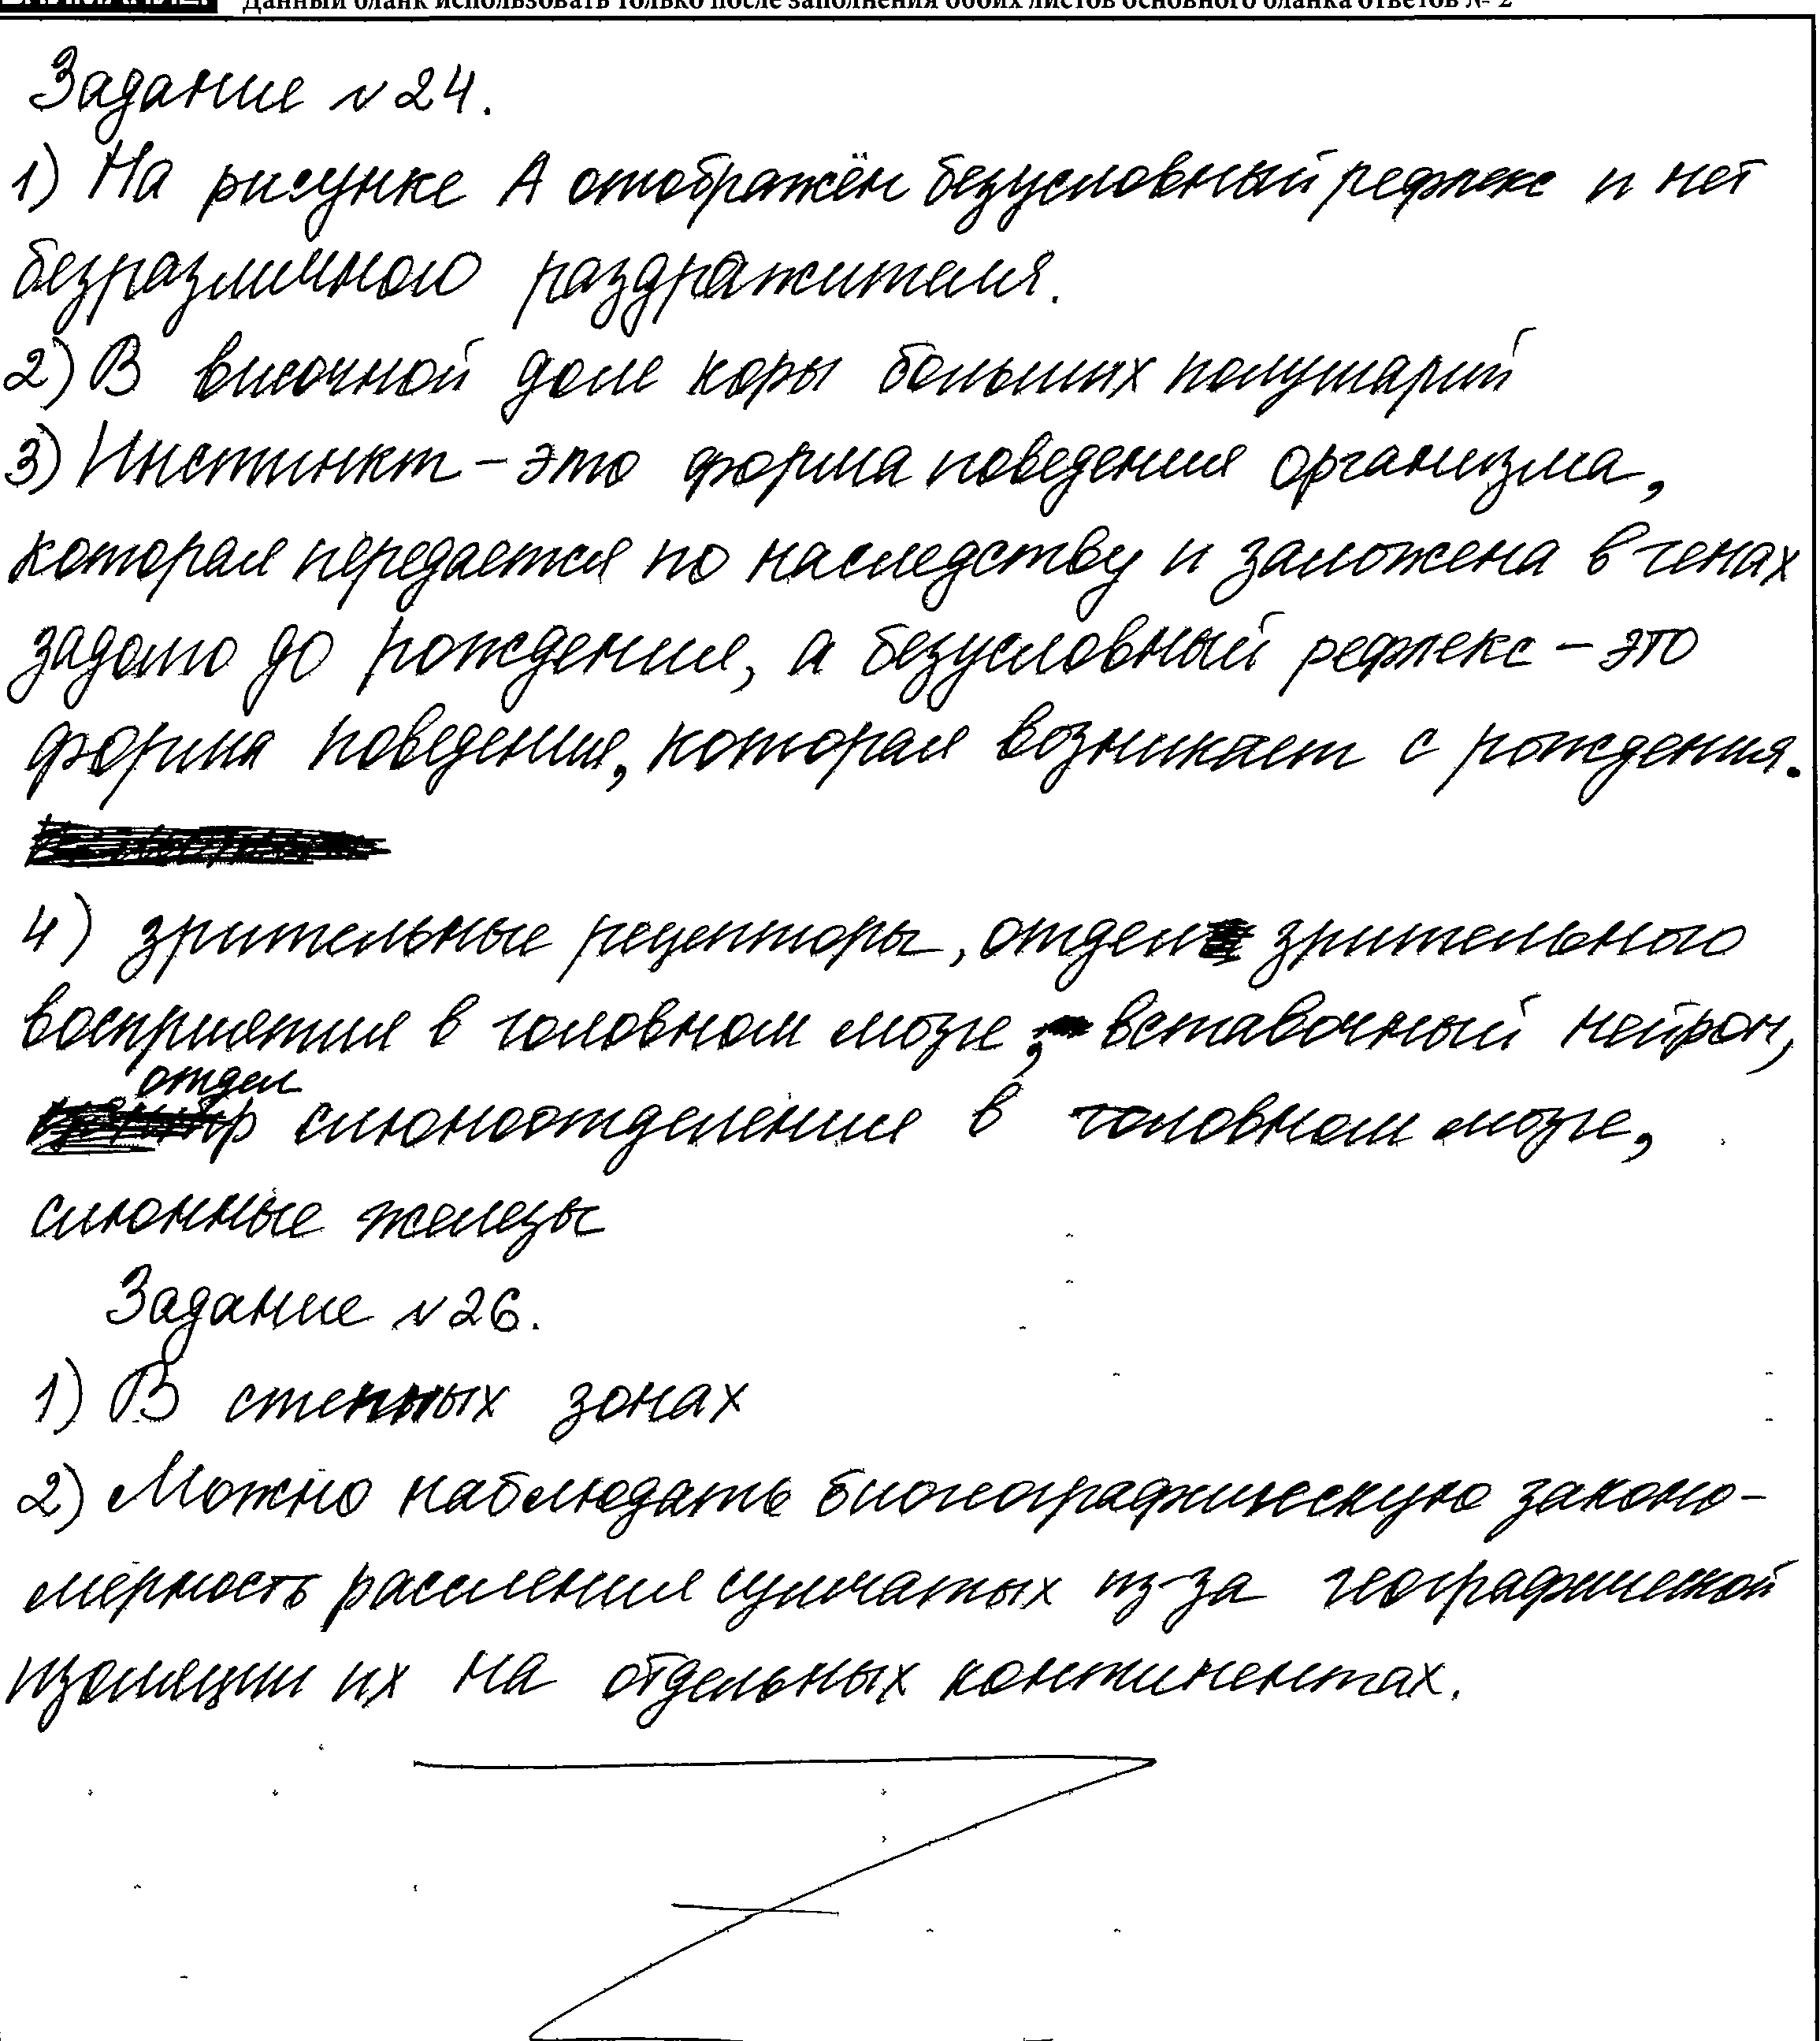 Данный бланк использовать только после заполнения обоих листов основного бланка ответов № 2
Задание №24.
1) На рисунке А отображён безусловный рефлекс и нет
безразличного раздражителя.
2) В височной доле коры больших полушарий
3) Инстинкт – это форма поведения организма,
которая передается по наследству и заложена в генах
задолго до рождения, а безусловный рефлекс – это
форма поведения, которая возникает с рождения.
4) зрительные рецепторы, отдел зрительного
восприятия в головном мозге, вставочный нейрон,
отдел
слюноотделения в головном мозге,
слюнные железы
Задание №26.
1) В степных зонах
2) Можно наблюдать биогеографическую законо-
мерность расселения сумчатых из-за географической
изоляции их на отдельных континентах.